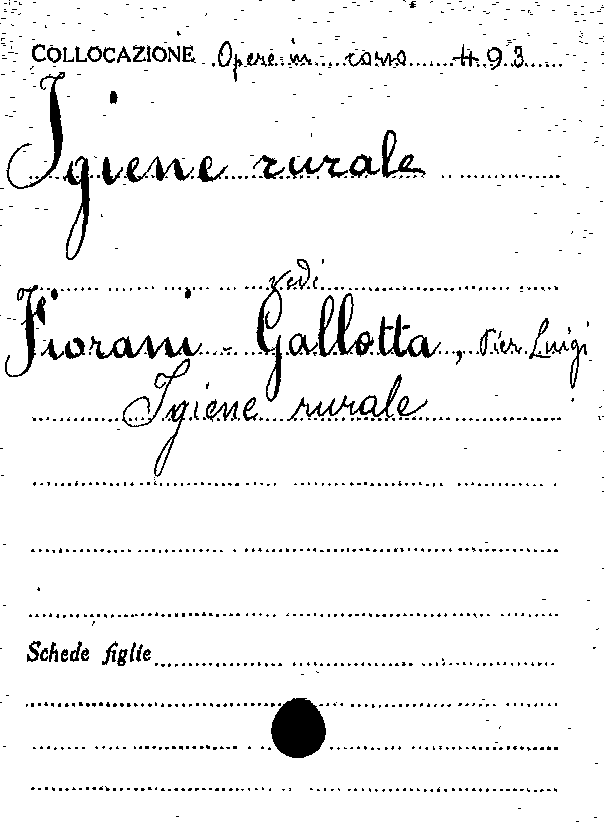 COLLOCAZIONE Opere in corso 493
Igiene rurale
vedi
Fiorani-Gallotta, Pier Luigi
Igiene rurale
Schede figlie